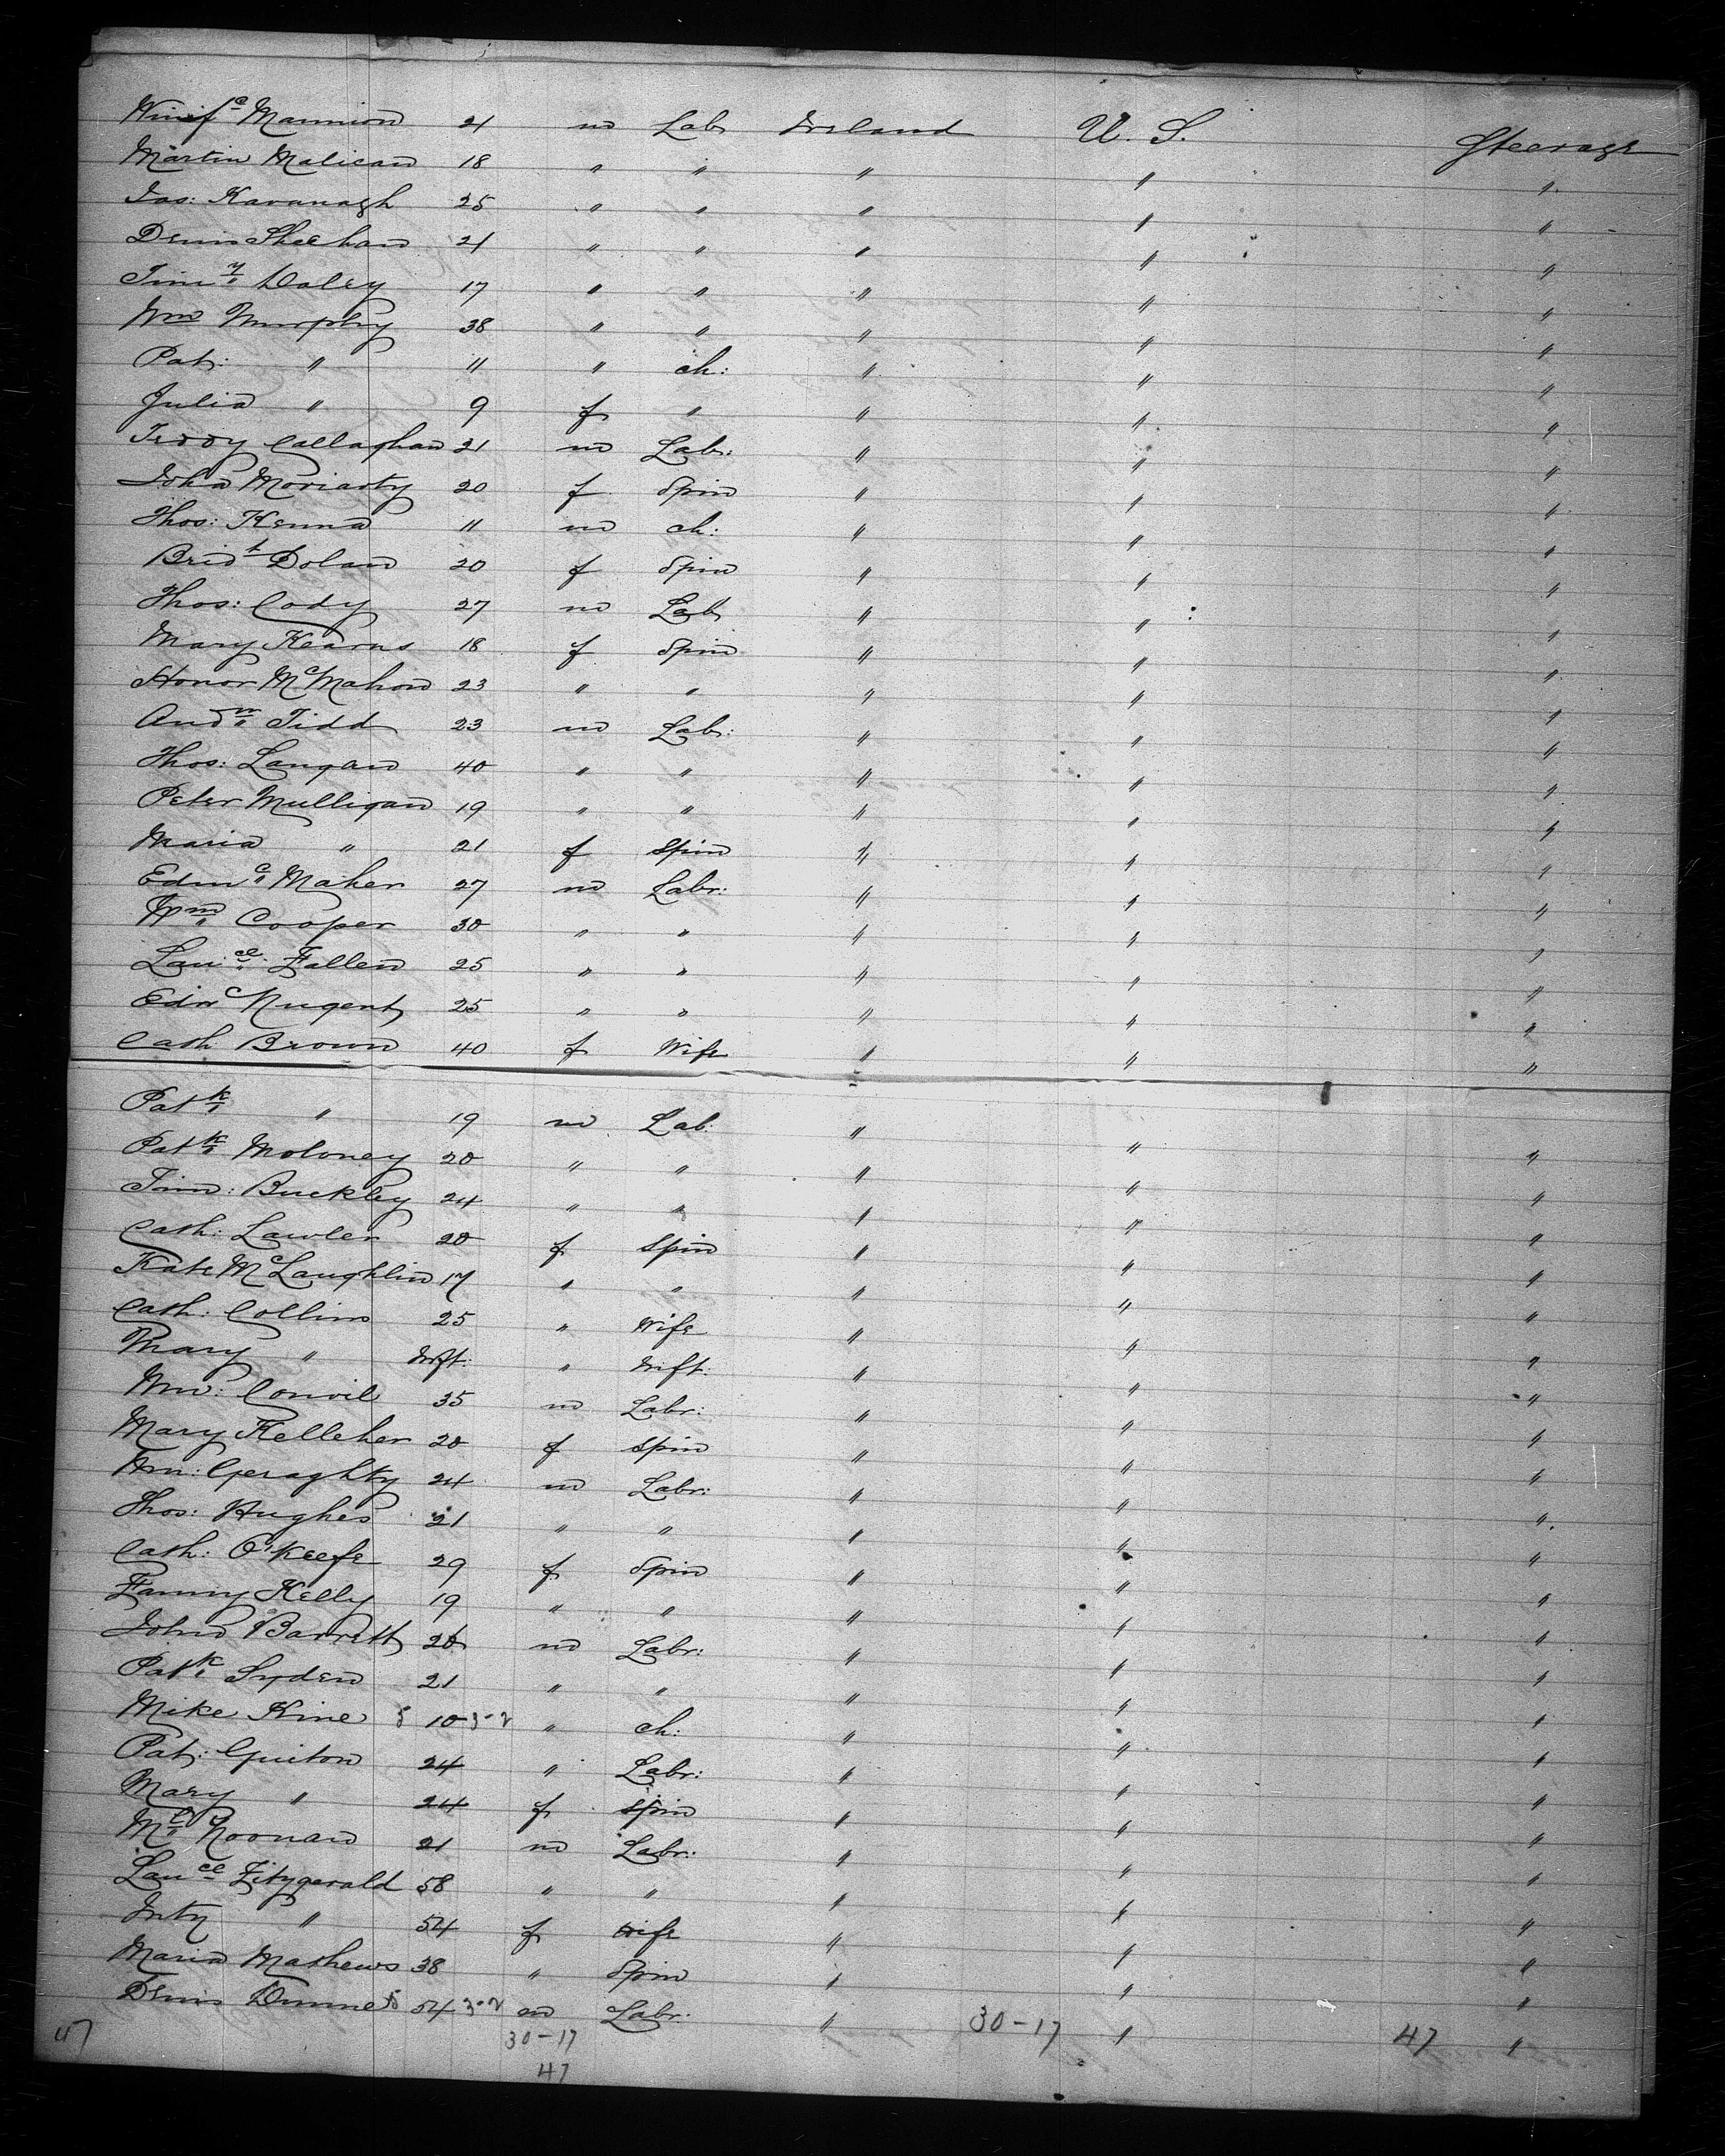 Winif^e Mannion 21 m Lab Ireland U. S. Steerage
Martin Malican 18 " " " " "
Jas: Kavanagh 25 " " " " "
Denis Sheehan 21 " " " " "
Tim^y Daley 17 " " " " "
Wm Murphy 38 " " " " "
Pat: " 11 " ch: " " "
Julia " 9 f " " " "
Teddy Callaghan 21 m Labr: " " "
Moriarty 20 f Spin " " "
Thos: Kenna 11 m ch: " " "
Brid^t Dolan 20 f Spin " " "
Thos: Cody 27 m Lab " " "
Mary Kearns 18 f Spin " " "
Honor McMahon 23 " " " " "
And^w Tidd 23 m Labr: " " "
Thos: Langan 40 " " " " "
Peter Mulligan 19 " " " " "
Maria " 21 f Spin " " "
Edm^d Maher 27 m Labr: " " "
Wm Cooper 30 " " " " "
Lau^ce Fallen 25 " " " " "
Edw^d Nugent 25 " " " " "
Cath Brown 40 f Wife " " "
Pat^k " 19 m Lab: " " "
Pat^k Moloney 20 " " " " "
Tim: Buckley 24 " " " " "
Cath: Lawler 20 f Spin " " "
Kate McLaughlin 17 " " " " "
Cath: Collins 25 " Wife " " "
Mary " Inft: " Inft: " " "
Wm: Convil 35 m Labr: " " "
Mary Kelleher 20 f Spin " " "
Wm: Geraghty 24 m Labr: " " "
Thos: Hughes 21 " " " " "
Cath: O'Keefe 29 f Spin " " "
Fanny Kelly 19 " " " " "
John Barrett 20 m Labr: " " "
Pat^k Syden 21 " " " " "
Mike Kine 5 10 3-2 " ch: " " "
Pat: Guiton 24 " Labr: " " "
Mary " 24 f Spin " " "
M^l Noonan 21 m Labr: " " "
Lau^ce Fitzgerald 58 " " " " "
" 54 f Wife " " "
Maria Mathews 38 " Spin " " "
Denis Dunne 5 54 3-2 m Labr: " 30-17 " 47 "
47 30-17
47